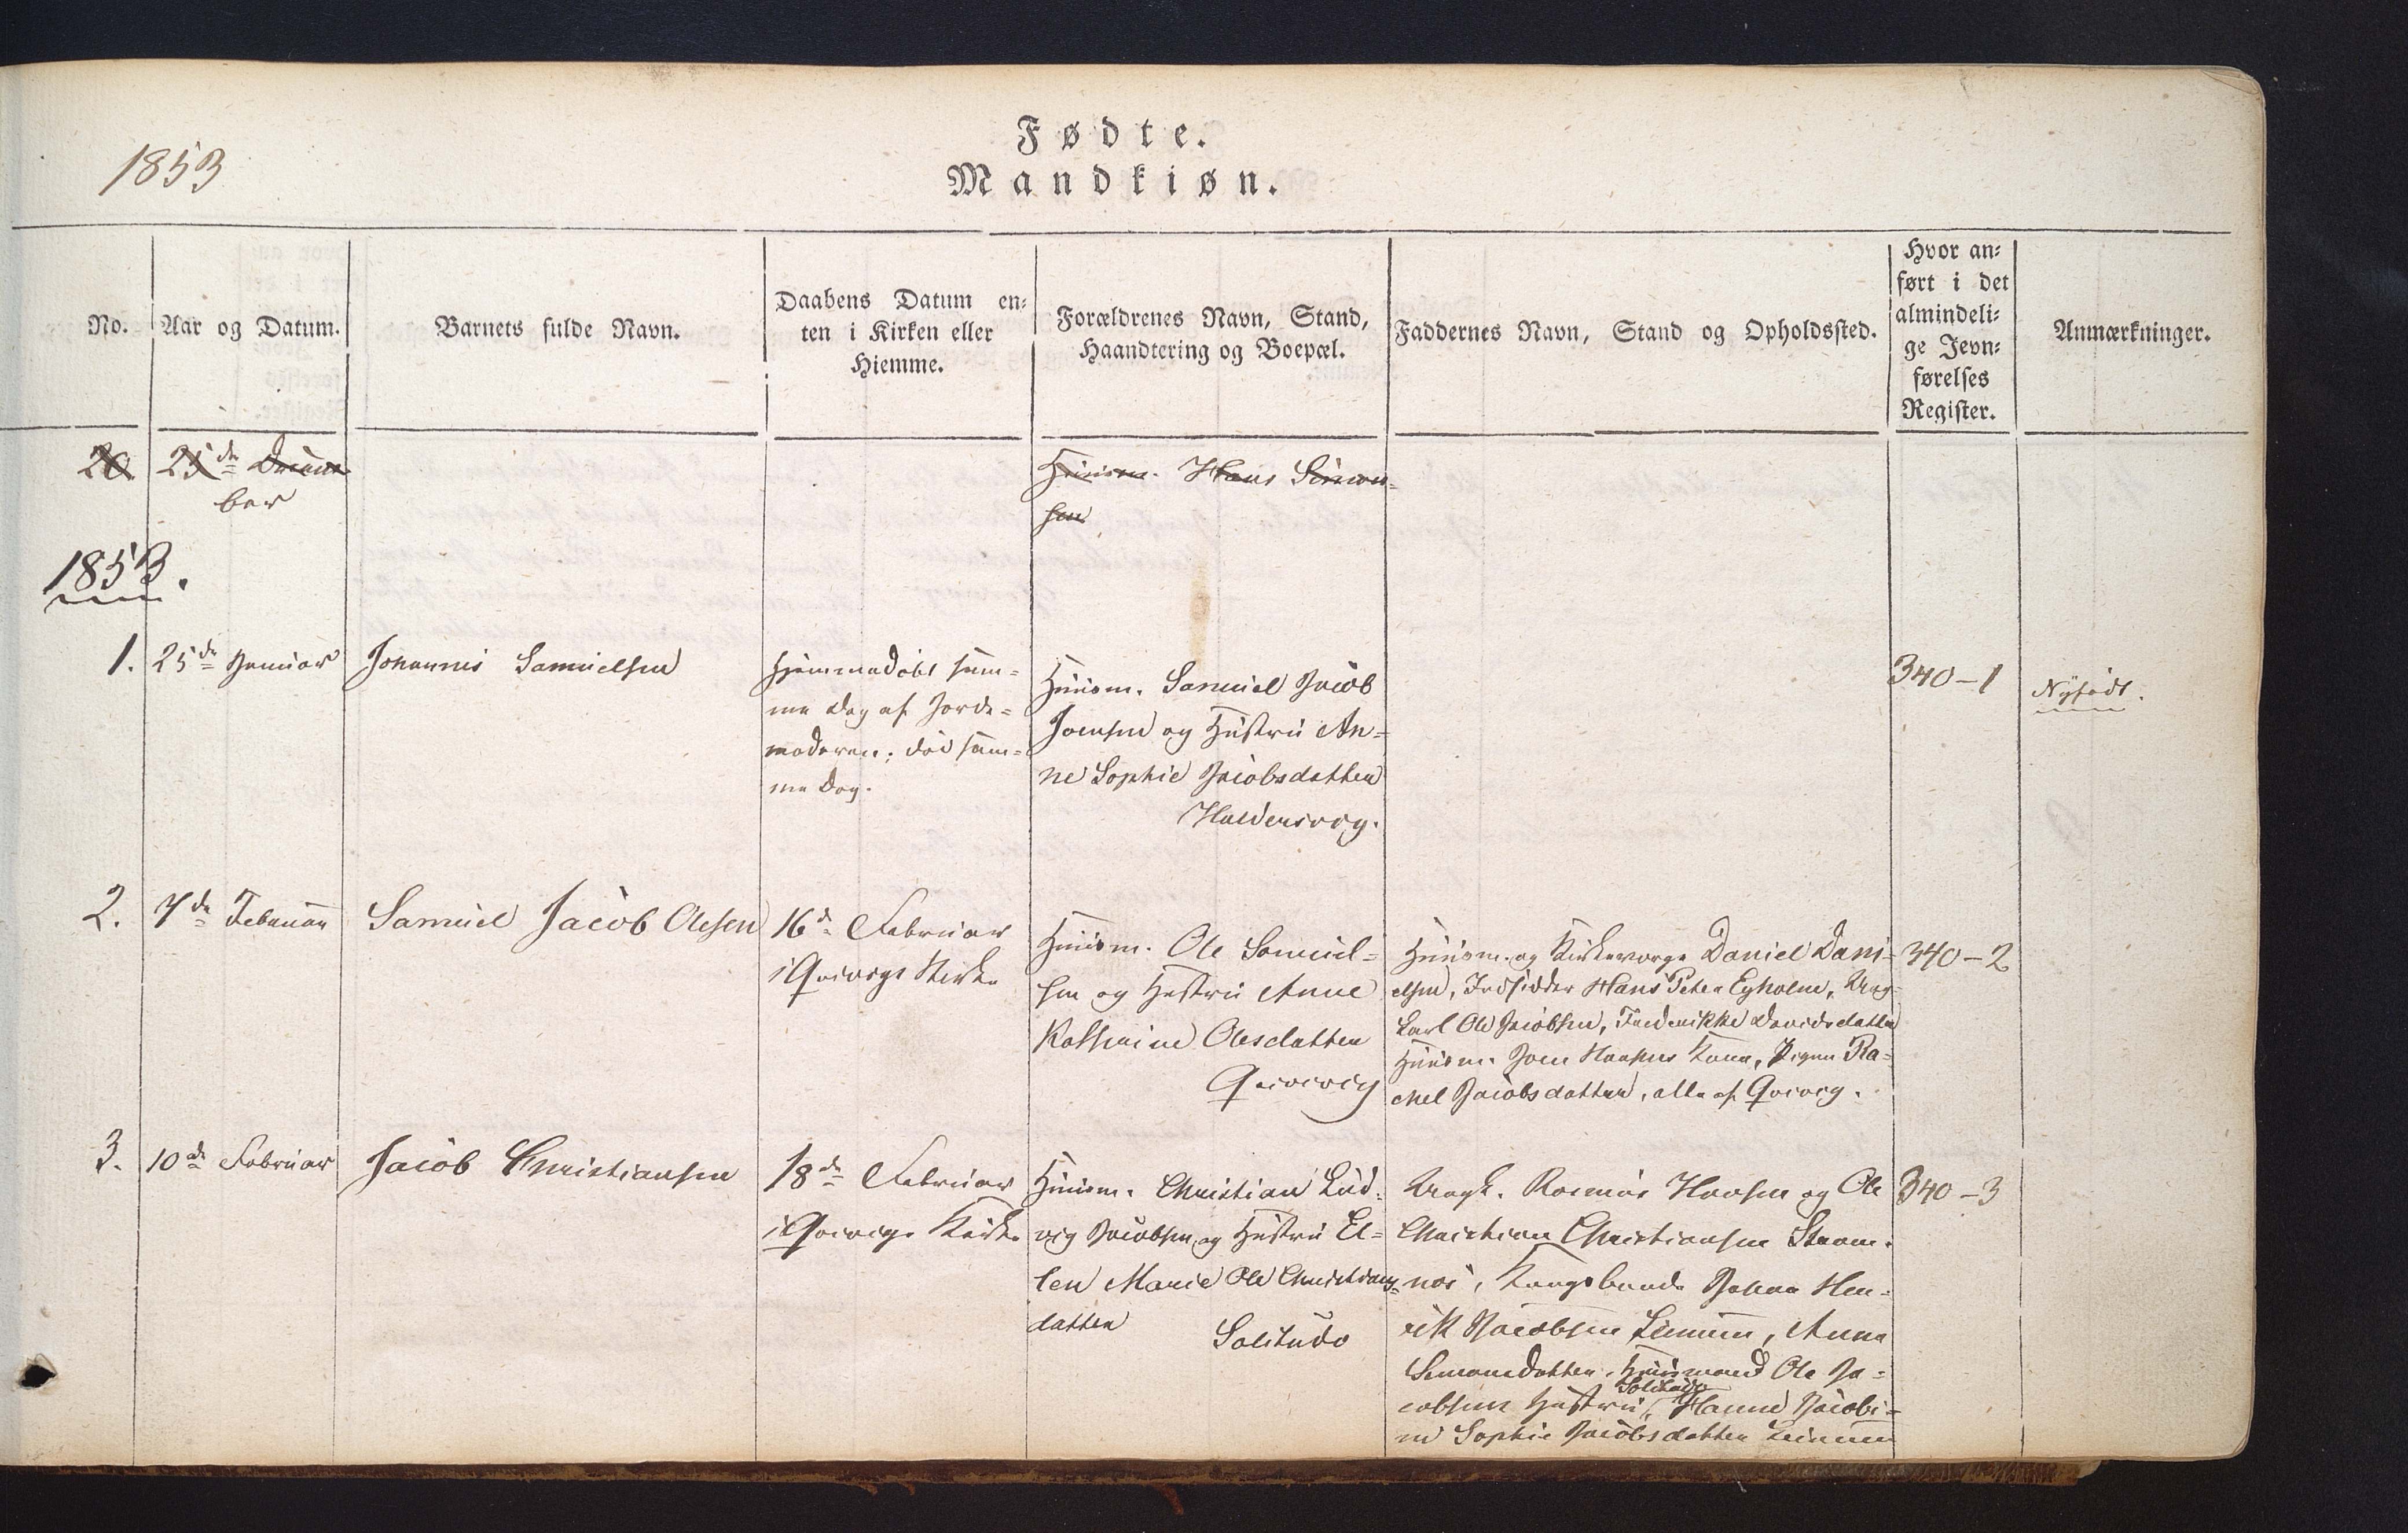 1853
Fødte.
Mandkiøn.
No.
Aar og Datum.
Barnets fulde Navn.
Daabens Datum en=
ten i Kirken eller
Hiemme.
Forældrenes Navn, Stand,
Haandtering og Boepæl.
Faddernes Navn, Stand og Opholdssted.
Hvor an=
ført i det
almindeli=
ge Jevn=
førelses
Register.
Anmærkninger.
20. 25de Decem
ber
Huusm. Hans Simon=
sen
1853.
1.
25de Januar
Johannes Samuelsen
Hjemmedøbt sam=
me Dag af Jorde=
moderen; død sam=
me Dag.
Huusm. Samuel Jacob
Joensen og Hustru An=
ne Sophie Jacobsdatter
Haldersvig.
340-1
Nyfødt.
2.
7de Februar
Samuel Jacob Olesen
16de Februar
i Qvivigs Kirke
Huusm. Ole Samuel=
sen og Hustru Anne
Kathrine Olesdatter
Qvivig
Huusm. og Kirkeværge Daniel Dani=
elsen, Indsidder Hans Peter Eyholm,
Carl Ole Jacobsen, Frederikke Davidsdatter
Huusm. Joen Hansens Kone, Pigen Ra=
chel Jacobsdatter, alle af Qvivig.
340-2
3.
10de Februar
Jacob Christiansen
18de Februar
i Qvivigs Kirke
Huusm. Christian Lud=
vig Jacobsen og Hustru El=
len Marie Ole Christians=
datter
Solitudo
Rasmus Hansen og Ole
Christian Christiansen Strøm=
næs, Kongsbonde Johan Hen=
rik Jacobsen Leinum, Anna
Simonsdatter, Huusmand Ole Ja=
cobsens Hustru, Solitudo Hanne Jacobi=
ne Sophie Jacobsdatter Leinum
340-3